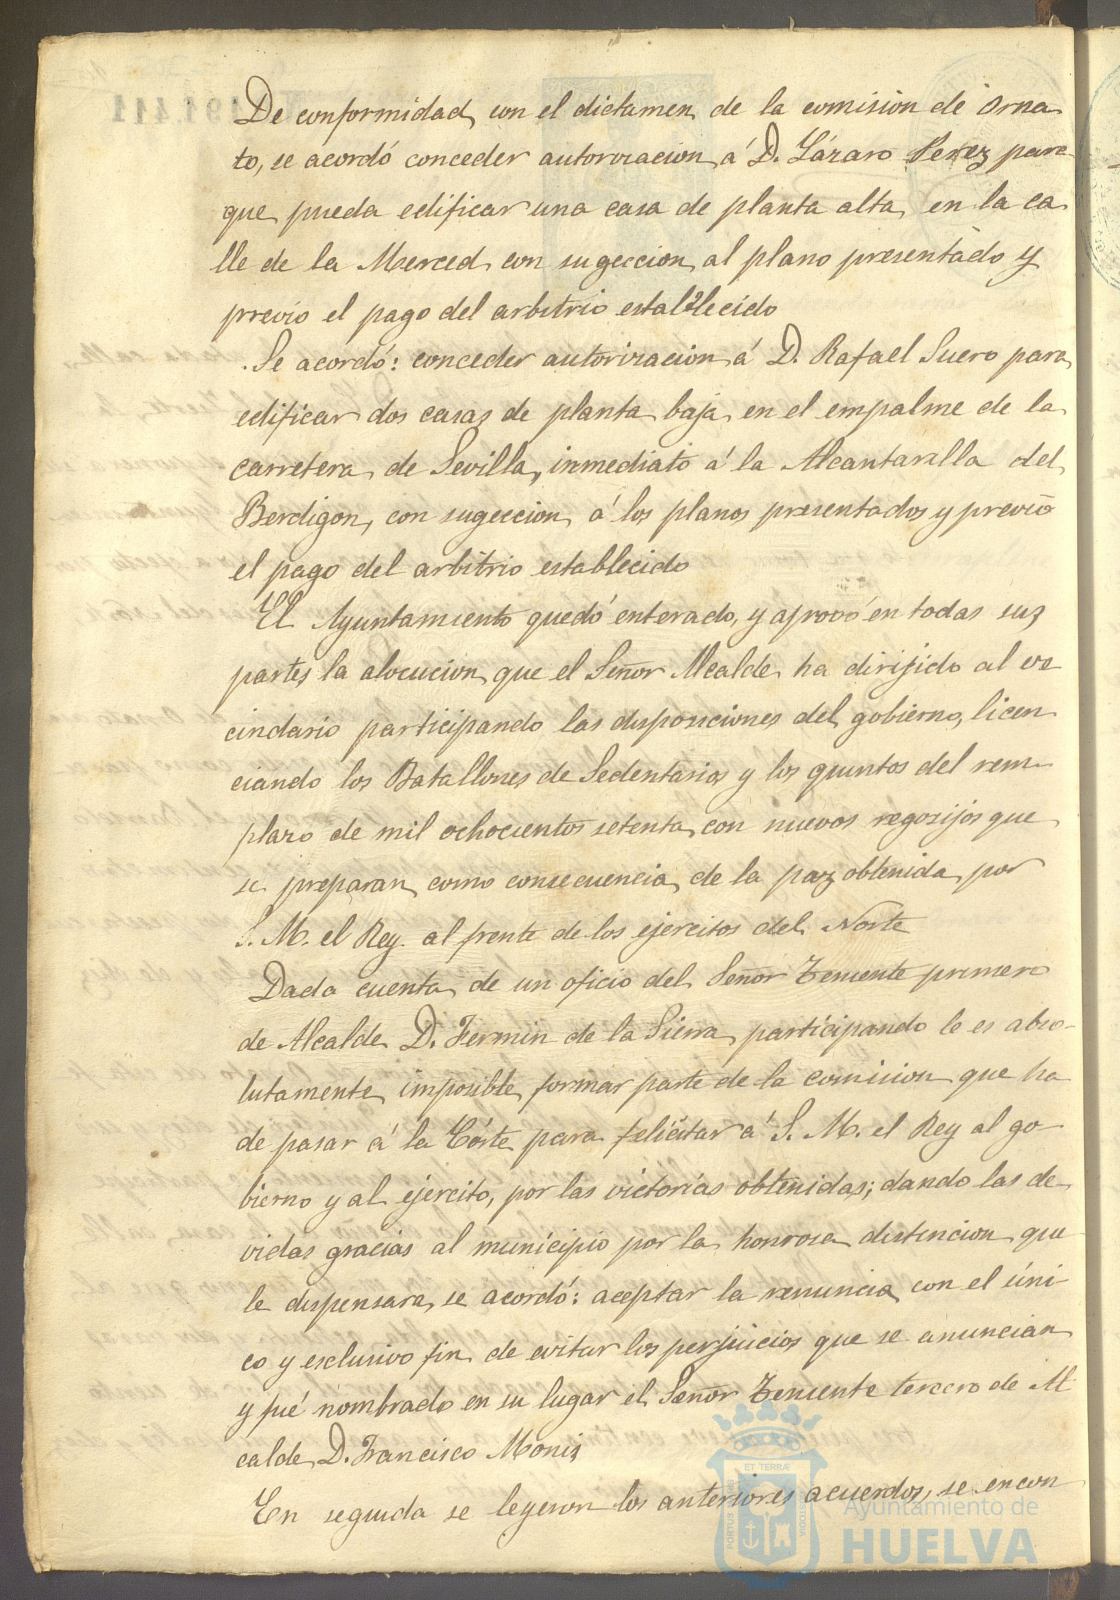 De conformidad con el dictamen de la comision de Orna
to, se acordó conceder autorizacion á D. Lázaro Perez para
que pueda edificar una casa de planta alta en la ca
lle de la Merced con sugeccion al plano presentado y
previo el pago del arbitrio establecido
Se acordó: conceder autorizacion á D. Rafael Suero para
edificar dos casas de planta baja en el empalme de la
carretera de Sevilla, inmediato á la Alcantarilla del
Berdigon, con sugeccion á los planos presentados y previo
el pago del arbitrio establecido
El Ayuntamiento quedó enterado, y aprovó en todas sus
partes la alocucion que el Señor Alcalde ha dirijido al ve
cindario participando las disposiciones del gobierno, licen
ciando los Batallones de Sedentarios y los quintos del rem-
plazo de mil ochocientos setenta, con nuevos regosijos que
se preparan como consecuencia de la paz obtenida por
S. M. el Rey al frente de los ejercitos del Norte
Dada cuenta de un oficio del Señor Teniente primero
de Alcalde D. Fermin de la Sierra, participando le es abso-
lutamente imposible formar parte de la comision que ha
de pasar á la Córte para felicitar á S. M. el Rey al go-
bierno y al ejercito, por las victorias obtenidas; dando las de-
vidas gracias al municipio por la honrosa distincion que
le dispensara, se acordó: aceptar la renuncia con el úni-
co y esclusivo fin de evitar los perjuicios que se anuncian
y fué nombrado en su lugar el Señor Teniente tercero de Al
calde D. Francisco Monis
En seguida se leyeron los anteriores acuerdos, se encon
Ayuntamiento de
HUELVA